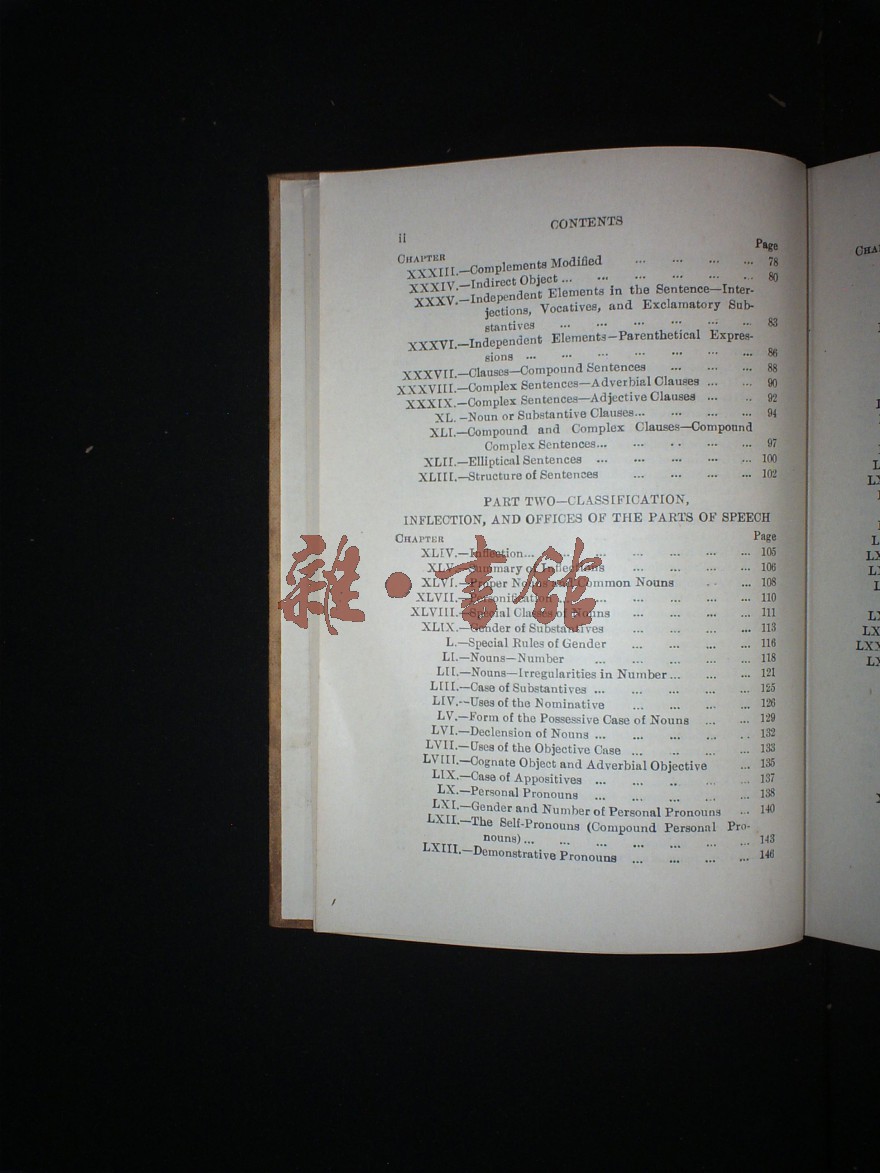 CONTENTS
ii
CHAPTER Page
XXXIII.—Complements Modified ... ... ... ... 78
XXXIV.—Indirect Object ... ... ... ... ... ... 80
XXXV.—Independent Elements in the Sentence—Inter-
jections, Vocatives, and Exclamatory Sub-
stantives ... ... ... ... ... ... 83
XXXVI.—Independent Elements—Parenthetical Expres-
sions ... ... ... ... ... ... ... 86
XXXVII.—Clauses—Compound Sentences ... ... ... 88
XXXVIII.—Complex Sentences—Adverbial Clauses ... ... 90
XXXIX.—Complex Sentences—Adjective Clauses ... .. 92
XL.—Noun or Substantive Clauses... ... ... ... 94
XLI.—Compound and Complex Clauses—Compound
Complex Sentences... ... .. ... ... 97
XLII.—Elliptical Sentences ... ... ... ... ... 100
XLIII.—Structure of Sentences ... ... ... ... 102
PART TWO—CLASSIFICATION,
INFLECTION, AND OFFICES OF THE PARTS OF SPEECH
CHAPTER Page
XLIV.—Inflection... ... ... ... ... ... ... 105
XLV.—Summary of Inflections ... ... ... ... 106
XLVI.—Proper Nouns and Common Nouns .. ... 108
XLVII.—Personification ... ... ... ... ... ... 110
XLVIII.—Special Classes of Nouns ... ... ... ... 111
XLIX.—Gender of Substantives ... ... ... ... 113
L.—Special Rules of Gender ... ... ... ... 116
LI.—Nouns—Number ... ... ... ... ... 118
LII.—Nouns—Irregularities in Number... ... ... 121
LIII.—Case of Substantives ... ... ... ... ... 125
LIV.—Uses of the Nominative ... ... ... ... 126
LV.—Form of the Possessive Case of Nouns ... ... 129
LVI.—Declension of Nouns ... ... ... ... .. 132
LVII.—Uses of the Objective Case ... ... ... ... 133
LVIII.—Cognate Object and Adverbial Objective ... 135
LIX.—Case of Appositives ... ... ... ... ... 137
LX.—Personal Pronouns ... ... ... ... ... 138
LXI.—Gender and Number of Personal Pronouns ... 140
LXII.—The Self-Pronouns (Compound Personal Pro-
nouns) ... ... ... ... ... ... ... 143
LXIII.—Demonstrative Pronouns ... ... ... ... 146
雜·書館